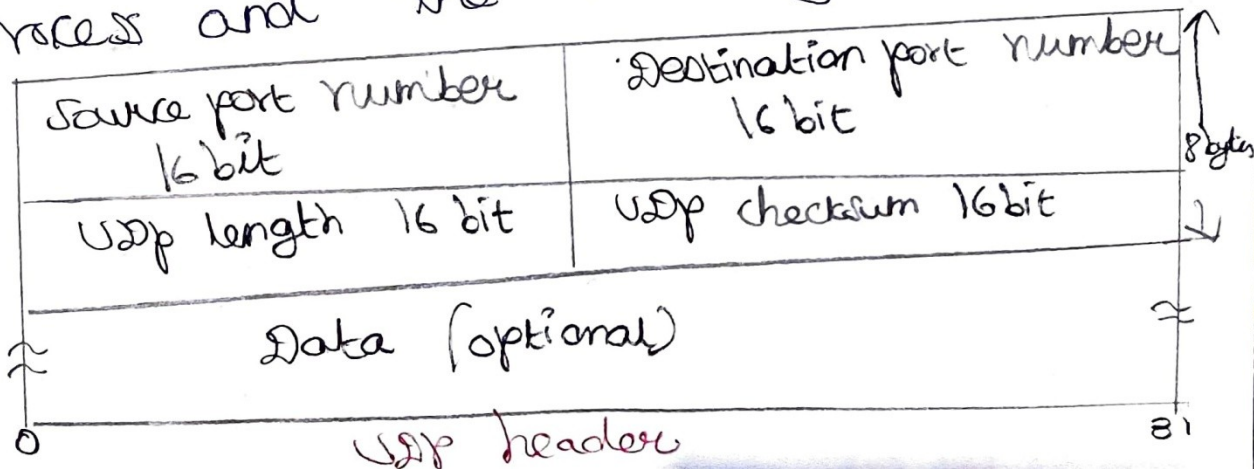 and
Source port number
16 bit
Destination port number
16 bit
8 bytes
UDP length 16 bit
UDP checksum 16 bit
Data (optional)
0
31
UDP header